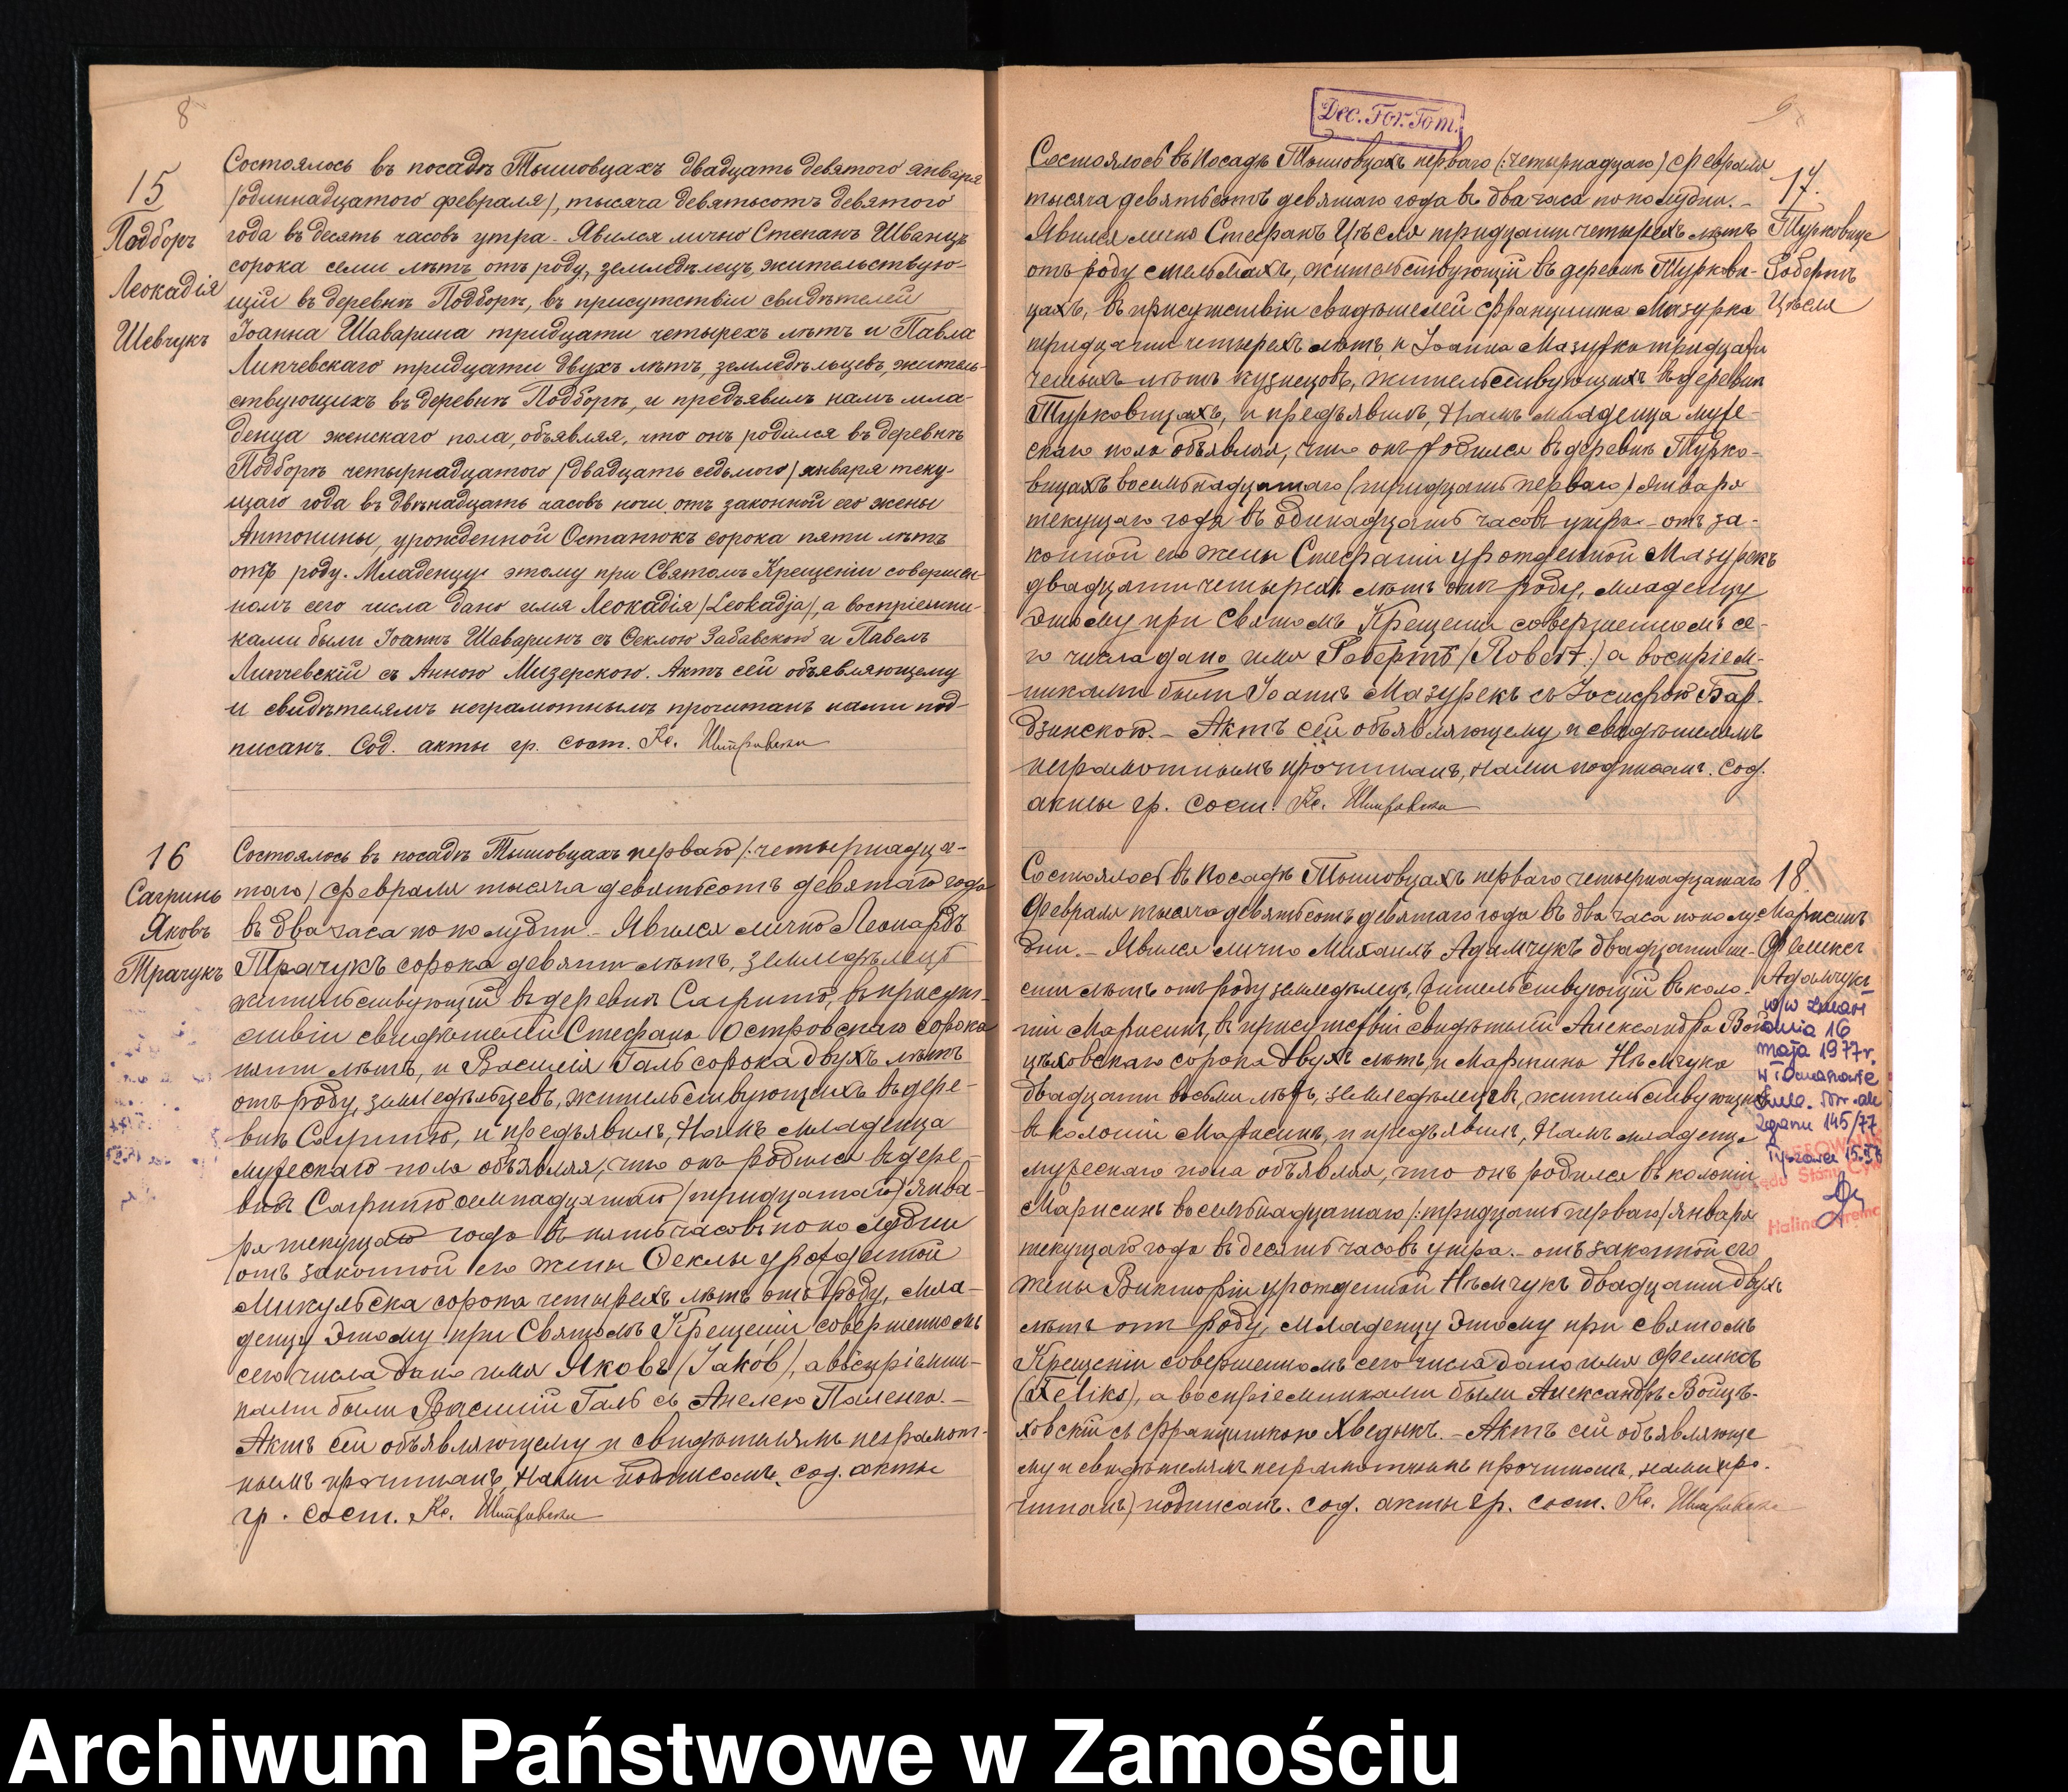 8
15
Подборъ
Леокадія
Шевчукъ
Состоялось въ посадѣ Тышовцахъ двадцать девятого января
/одиннадцатого февраля/, тысяча девятьсотъ девятого
года въ десять часовъ утра. Явился лично Степанъ
сорока семи лѣтъ отъ роду, земледѣлецъ, жительствую-
щій въ деревнѣ Подборѣ, въ присутствіи свидѣтелей
Іоанна Шаварина тридцати четырехъ лѣтъ и Павла
Липчевскаго тридцати двухъ лѣтъ, земледѣльцевъ, житель-
ствующихъ въ деревнѣ Подборѣ, и предъявилъ намъ мла-
денца женскаго пола, объявляя, что онъ родился въ деревнѣ
Подборѣ четырнадцатого /двадцать седьмого/ января теку-
щаго года въ двѣнадцать часовъ ночи отъ законной его жены
Антонины, урожденной Останюкъ сорока пяти лѣтъ
отъ роду. Младенцу этому при Святомъ Крещеніи совершен-
номъ сего числа дано имя Леокадія /Leokadja/, а воспріемни-
ками были Іоаннъ Шаваринъ съ Феклою Забавскою и Павелъ
Липчевскій съ Анною Мизерскою. Актъ сей объявляющему
и свидѣтелямъ неграмотнымъ прочитанъ нами под-
писанъ. Сод. акты гр. сост. Кс.
16
Сагринь
Яковъ
Трачукъ
Состоялось въ посадѣ Тышовцахъ перваго /:четырнадца-
таго/ февраля тысяча девятьсотъ девятаго года
въ два часа по полудни. – Явился лично Леонардъ
Трачукъ сорока девяти лѣтъ, земледѣлецъ
жительствующій въ деревнѣ Сагринѣ, въ присут-
ствіи свидѣтелей Стефана Островскаго сорока
пяти лѣтъ, и Василія Галь сорока двухъ лѣтъ
отъ роду, земледѣльцевъ, жительствующихъ въ дере-
внѣ Сагринѣ, и предъявилъ, Намъ младенца
мужескаго пола объявляя, что онъ родился въ дере-
внѣ Сагринѣ семнадцатаго /тридцатаго/ янва-
ря текущаго года въ пять часовъ по полудни
отъ законной его жены Феклы урожденной
Микульска сорока четырехъ лѣтъ отъ роду, Мла-
денцу этому при Святомъ Крещеніи совершенномъ
сего числа дано имя Яковъ (Jakób), а воспріемни-
ками были Василій Галь съ Анелею –
Актъ сей объявляющему и свидѣтелямъ неграмот-
нымъ прочитанъ, Нами подписанъ. сод. акты
гр. сост. Кс.
Dec. For. Tom.
9
17.
Турковице
Робертъ
Цѣсля
Состоялось въ Посадѣ Тышовцахъ перваго (:четырнадцаго) февраля
тысяча девятьсотъ девятаго года въ два часа по полудни. –
Явился лично Стефанъ Цѣсля тридцати четырехъ лѣтъ
отъ роду стельмахъ, жительствующій въ деревнѣ Туркови-
цахъ, въ присутствіи свидѣтелей Францишка Мазурка
тридцати четырехъ лѣтъ, и Іоанна Мазурка тридцати
лѣтъ кузнецовъ, жительствующихъ въ деревнѣ
Турковицахъ, и предъявилъ, Намъ младенца муже-
скаго пола объявляя, что онъ родился въ деревнѣ Турко-
вицахъ восемьнадцатаго (тридцать перваго) января
текущаго года въ одинадцать часовъ утра – отъ за-
конной его жены Стефаніи урожденной Мазурекъ
двадцати четырехъ лѣтъ отъ роду, младенцу
этому при Святомъ Крещеніи совершенномъ се-
го числа дано имя Робертъ (Robert.) а воспріем-
никами были Іоаннъ Мазурекъ съ Іосифою Бар-
дзинскою. – Актъ сей объявляющему и свидѣтелямъ
неграмотнымъ прочитанъ, нами подписанъ. Сод.
акты гр. сост. Кс.
18
Марисинъ
Феликсъ
Адамчукъ
Состоялось въ Посадѣ Тышовцахъ перваго четырнадцатаго
Февраля тысяча девятьсотъ девятаго года въ два часа по полу-
дни. – Явился лично Михаилъ Адамчукъ двадцати ше-
сти лѣтъ отъ роду земледѣлецъ, жительствующій въ коло-
ніи Марисинъ, въ присутствіи свидѣтелей Александра Вой-
цѣховскаго сорока двухъ лѣтъ, и Мартина Нѣмчука
двадцати восьми лѣтъ, земледѣльцевъ, жительствующихъ
въ колоніи Марисинъ, и предъявилъ, Намъ младенца
мужескаго пола объявляя, что онъ родился въ колоніи
Марисинъ восемьнадцатаго /:тридцать перваго/ января
текущаго года въ десять часовъ утра. – отъ законной его
жены Викторіи урожденной Нѣмчукъ двадцати двухъ
лѣтъ отъ роду, младенцу этому при святомъ
Крещеніи совершенномъ сего числа дано имя Феликсъ
(Feliks), а воспріемниками были Александръ Войцѣ-
ховскій съ Францишкою Хведыкъ. – Актъ сей объявляюще
му и свидѣтелямъ неграмотнымъ прочитанъ, нами про-
читанъ) подписанъ. сод. акты гр. сост. Кс.
w/w zmarł
dnia 16
maja 1977 r.
w Tomaszowie
Lub. Nr. ak
zgonu 145/77
Halina
Archiwum Państwowe w Zamościu